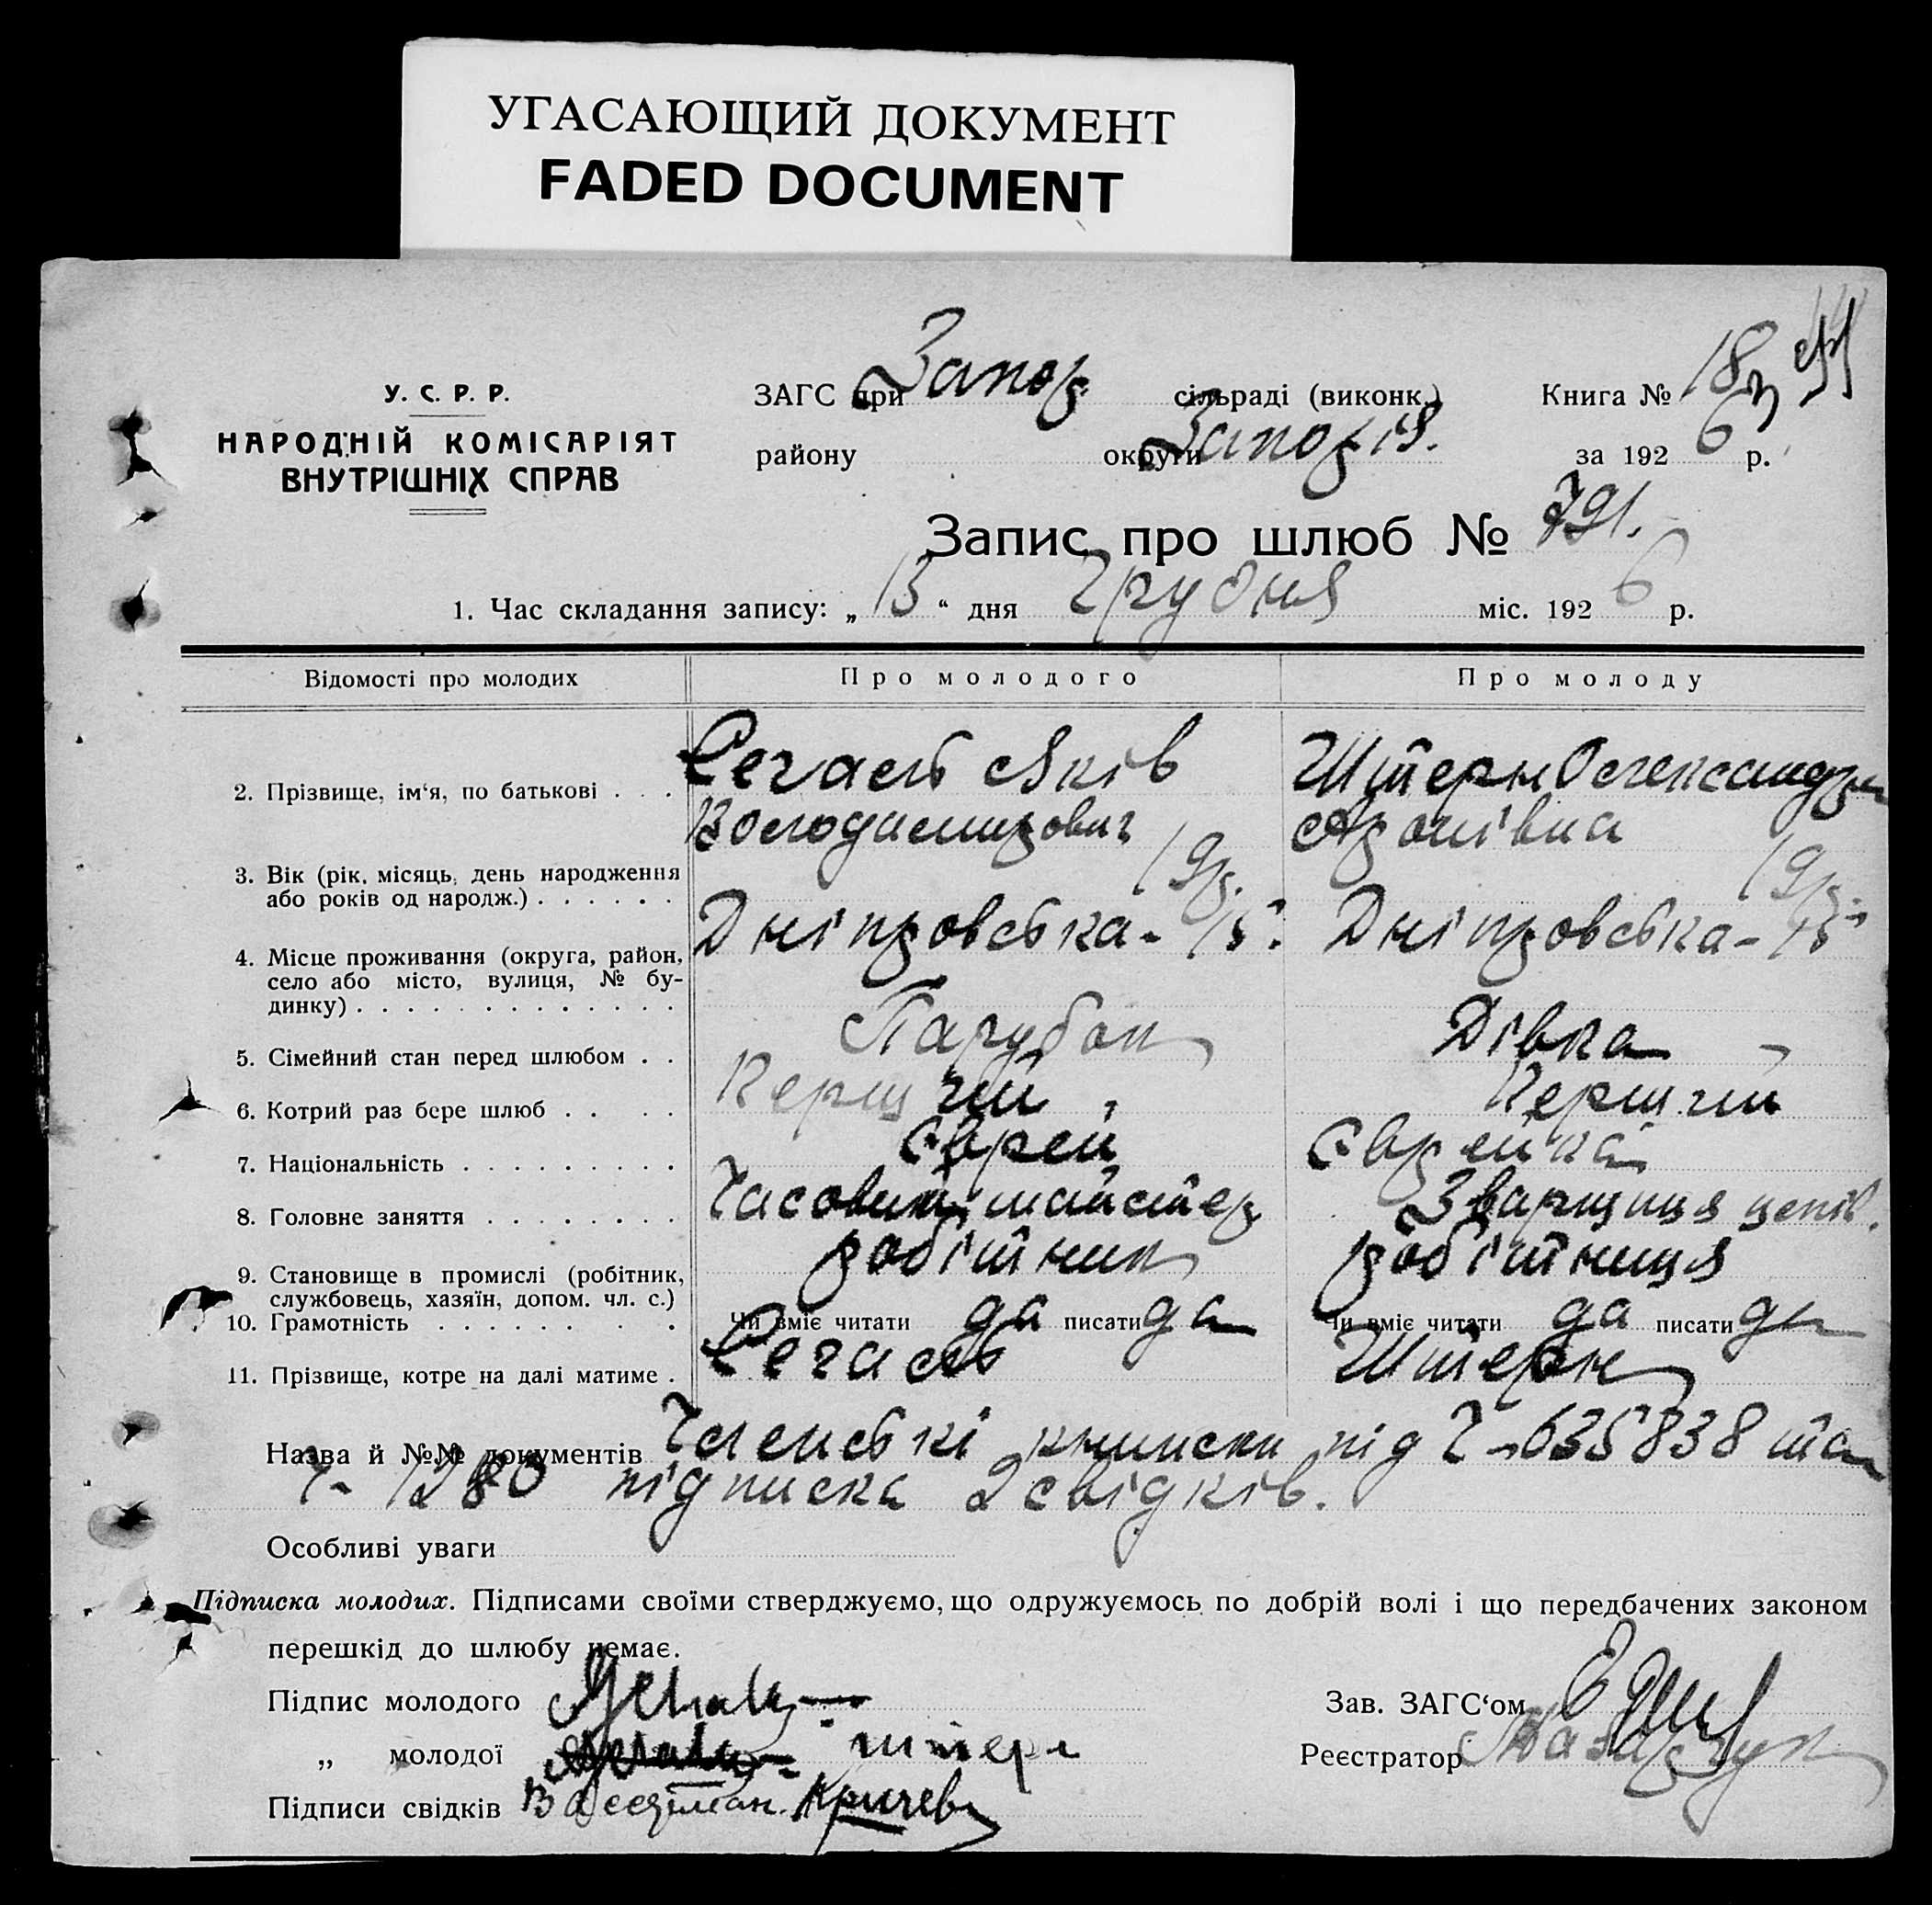 УГАСАЮЩИЙ ДОКУМЕНТ
FADED DOCUMENT
У. С. Р. Р.
НАРОДНІЙ КОМІСАРІЯТ
ВНУТРІШНІХ СПРАВ
ЗАГС при Запор. сільраді (виконк.)
району округи Запоріз.
Книга № 18
за 1926 р.
Запис про шлюб № 791.
1. Час складання запису: „13“ дня Грудня міс. 1926 р.
Відомості про молодих Про молодого Про молоду
2. Прізвище, ім‘я, по батькові . . . Сегаль Яків Володимирович Штерн Олександра Аронівна
3. Вік (рік, місяць, день народження
або років од народж.) . . . . . . 19 р. 19 р.
4. Місце проживання (округа, район,
село або місто, вулиця, № бу-
динку) . . . . . . . . . . . . . Дніпровська - 15. Дніпровська - 15
5. Сімейний стан перед шлюбом . . Парубок Дівка
6. Котрий раз бере шлюб . . . . Перший Перший
7. Національність . . . . . . . . . Єврей Єврейка
8. Головне заняття . . . . . . . . Часовий майстер Зварщиця
9. Становище в промислі (робітник,
службовець, хазяїн, допом. чл. с.) робітник робітниця
10. Грамотність . . . . . . . . . Чи вміє читати да писати да Чи вміє читати да писати да
11. Прізвище, котре на далі матиме . Сегаль Штерн
Назва й №№ документів Членські книжки під Ч-635838 та
Ч- 1280 підписка 2 свідків.
Особливі уваги
Підписка молодих. Підписами своїми стверджуємо, що одружуємось по добрій волі і що передбачених законом
перешкід до шлюбу немає.
Підпис молодого
„ молодої Штерн
Підписи свідків Вассерман. Кричев
Зав. ЗАГС‘ом
Реєстратор